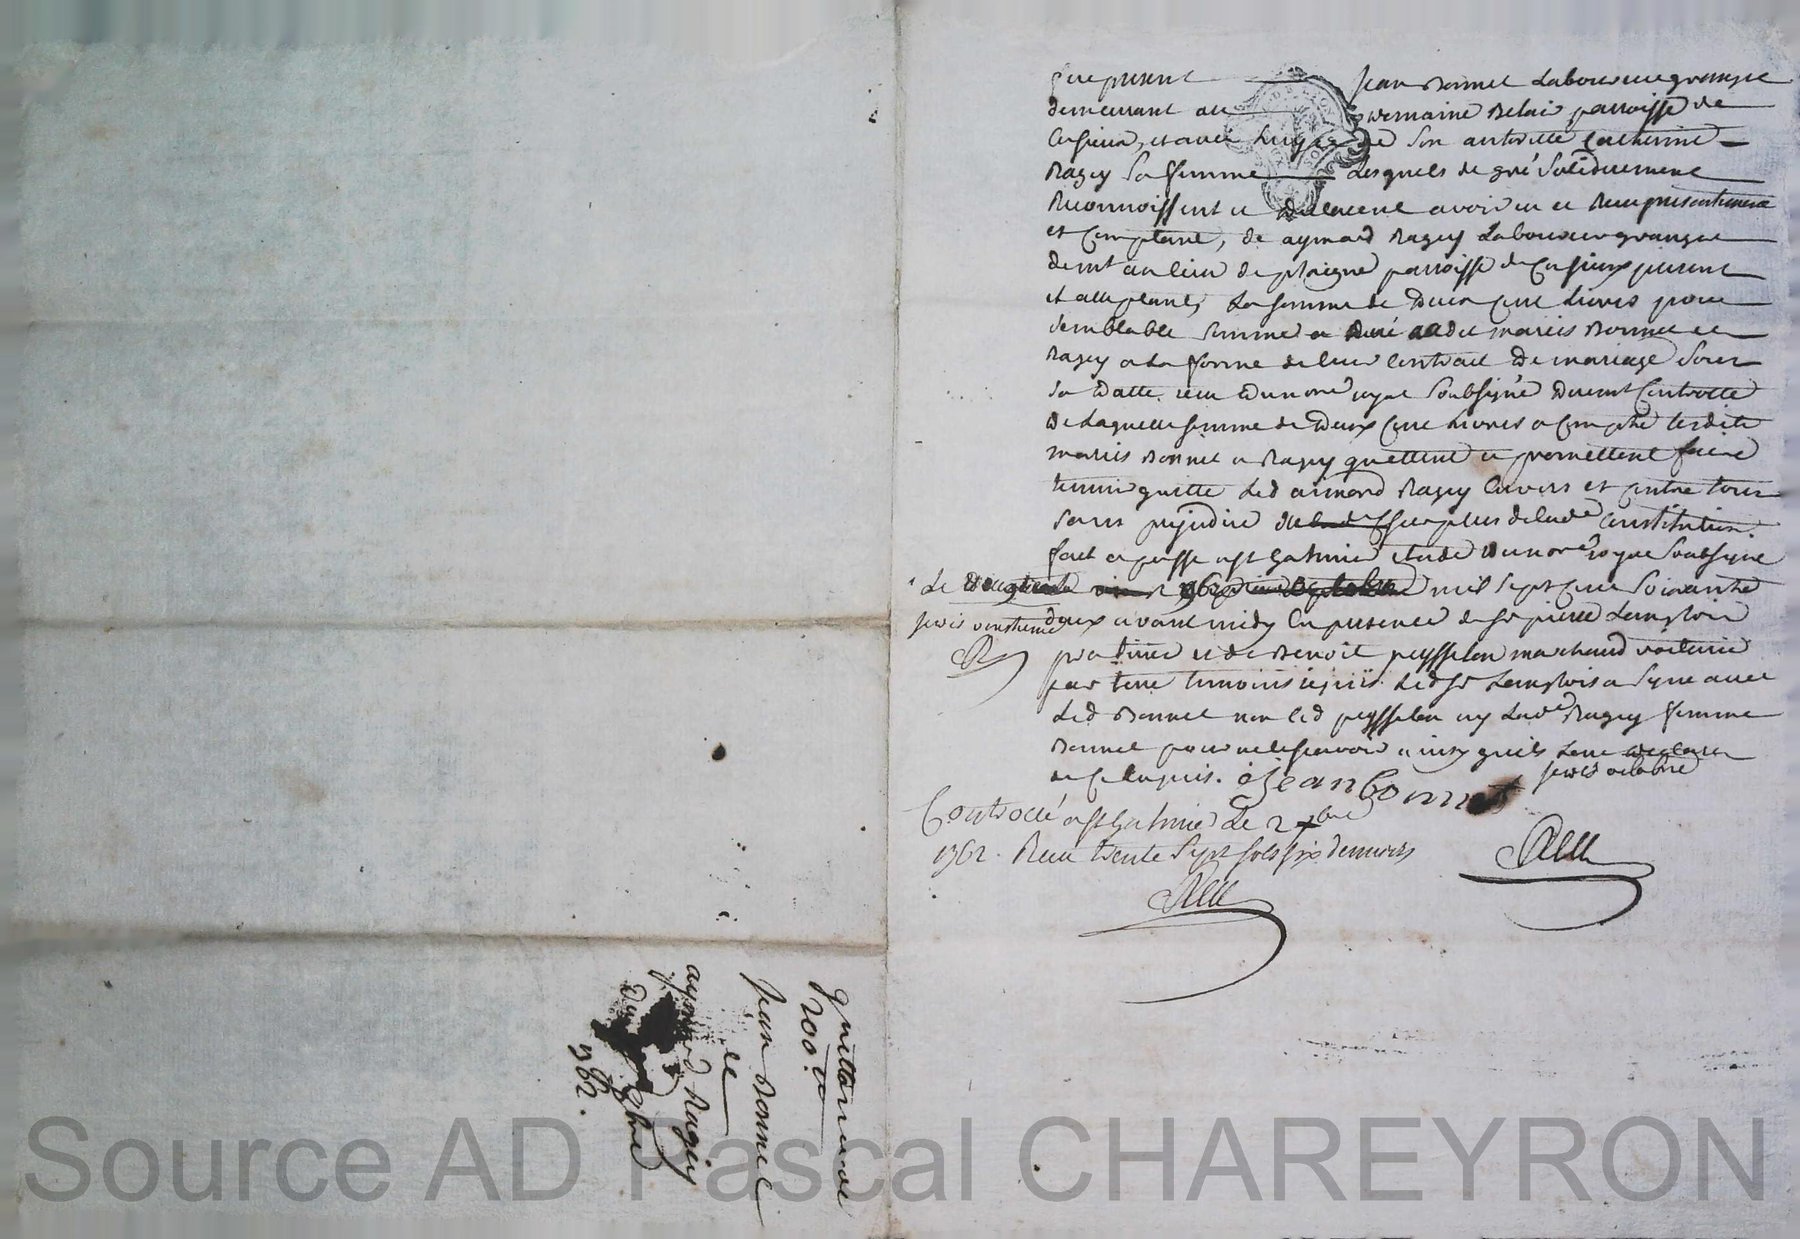 fut present Jean Bonnet Laboureur granger
demeurant au domaine Belair parroisse de
Cusieux, et avec luy de son authorité Catherine
Ragey sa femme Lesquels de gré solidairement
Reconnoissent et avoir eu et Receu presentement
et comptant, de aymard Ragey Laboureur granger
demt au lieu de parroisse de Cusieux present
et acceptant, La somme de Deux cent Livres pour
semblable somme a mariés Bonnet et
Ragey a la forme de leur Contrat De mariage sous
sa Datte receu Dunore royal soubsigné Duemt Controllé
De Laquelle somme de Deux cent Livres a compte lesdits
mariés Bonnet et Ragey quittent et promettent faire
tenir quitte Led aimard Ragey Envers et contre tous
sans prejudice du surplus de lade Constitution.
fait et passé a st Galmier etude Dunore royal soubsigné
Le mil sept cent soixante
deux avant midy En presence de sr pierre Langlois
praticien et de Benoit peysselon marchand voiturier
par terre temoins requis. Led sr Langlois a signé avec
Led Bonnet non led peysselon ny Lade Ragey femme
Bonnet pour ne le sçavoir ainsy quils Lont declaré
de ce enquis.
octobre
Jean bonnet
Controllé a st Galmier Le 2 9bre
1762. Receu trente sept sols six deniers
quittance de
200 ₶
Jean Bonnet
a
aymard Ragey
1762.
Source AD Pascal CHAREYRON